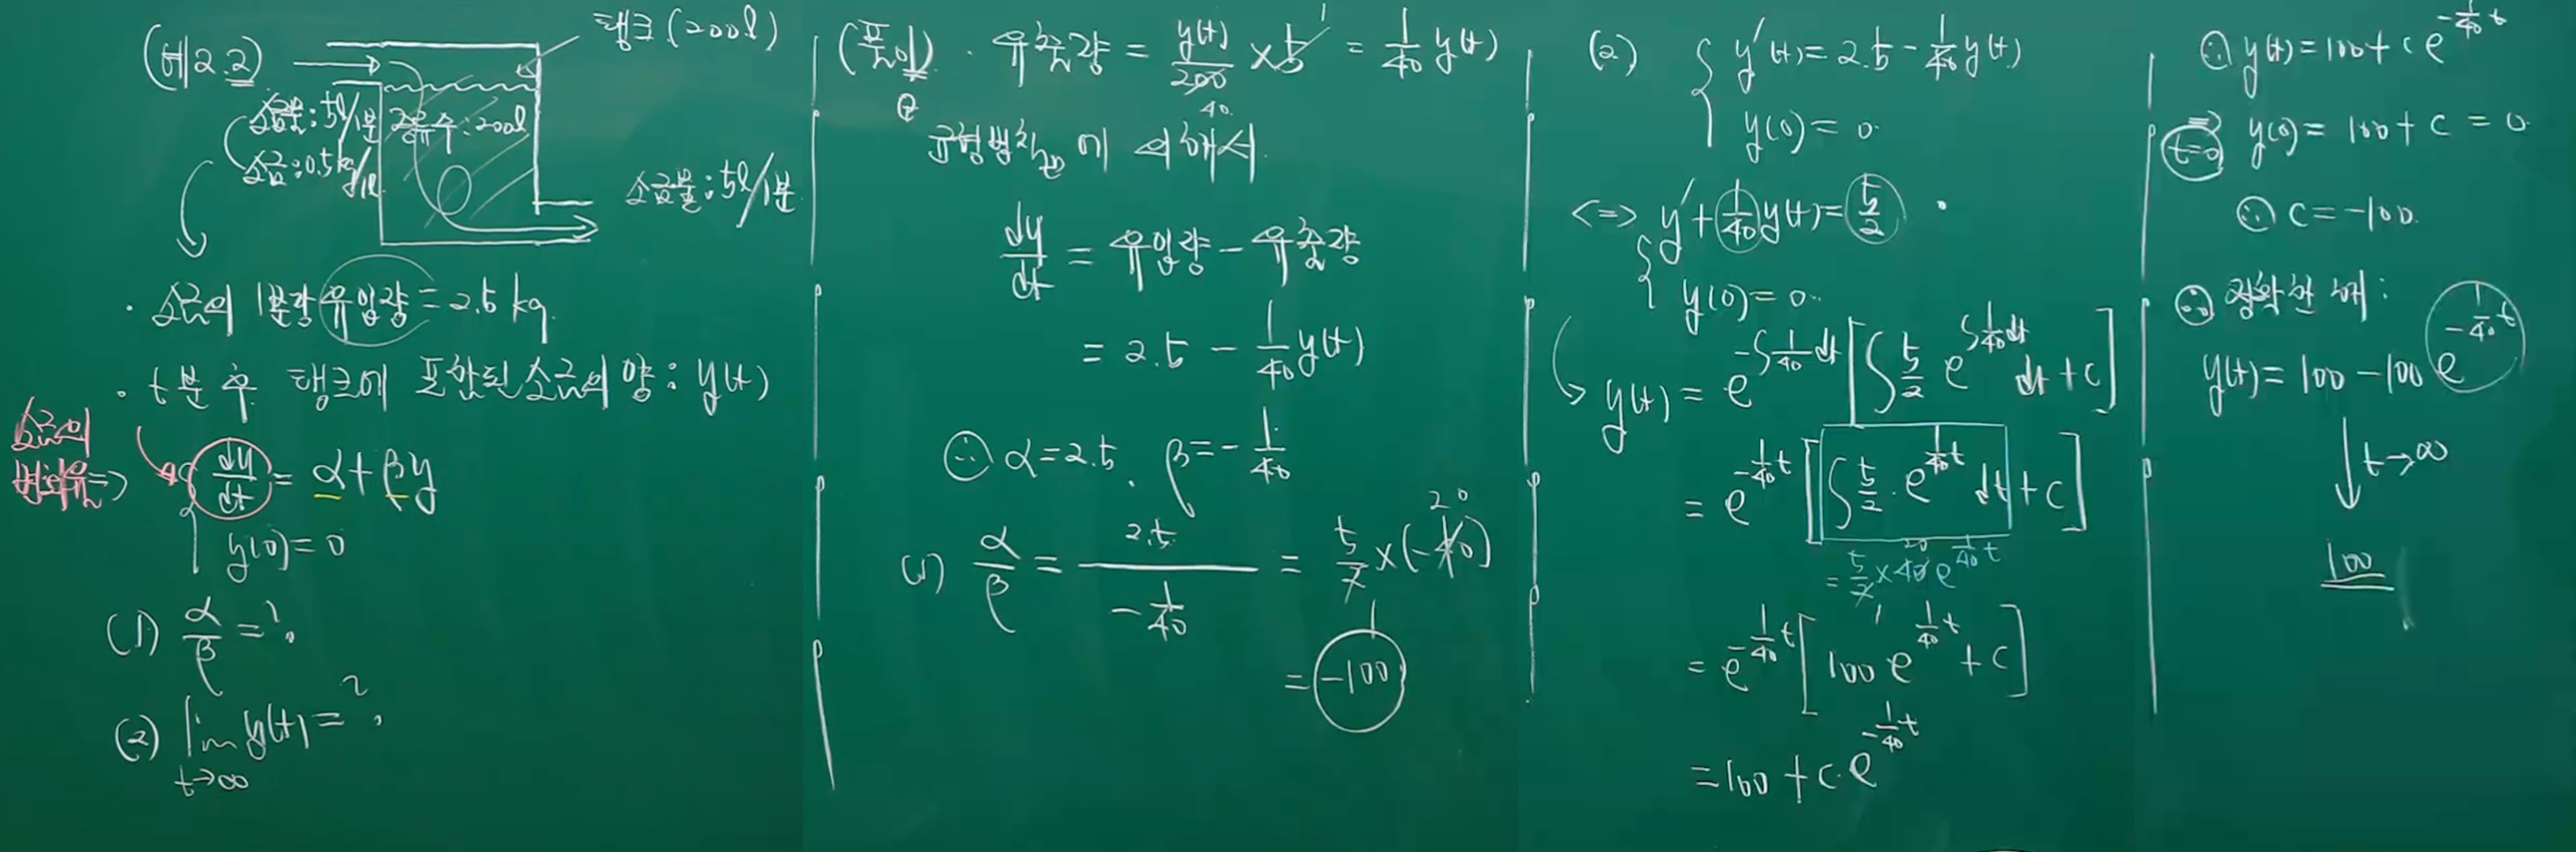 (예2.2)
탱크(200l)
소금물:5l/1분
소금:0.5kg/1l
200l
소금물:5l/1분
· 소금의 1분당 유입량=2.5kg
· t분 후 탱크에 포함된 소금의 양: y(t)
소금의
변화율=>
dy/dt = α+βy
y(0)=0
(1) α/β =?
(2) lim t→∞ y(t)=?
(풀이) · 유출량 = y(t)/200 × 5 = 1/40 y(t)
40
1
평형법칙에 의해서
dy/dt = 유입량 - 유출량
= 2.5 - 1/40 y(t)
∴ α=2.5. β=-1/40
(1) α/β = 2.5/(-1/40) = 5/2×(-40)
20
1
= -100
(2) y'(t)=2.5-1/40 y(t)
y(0)=0
<=> y'+1/40 y(t)=5/2
y(0)=0
y(t)=e^{-∫1/40 dt}[∫5/2 e^{∫1/40 dt} dt+c]
=e^{-1/40 t}[∫5/2·e^{1/40 t} dt+c]
=5/2×40e^{1/40 t}
20
1
=e^{-1/40 t}[100e^{1/40 t}+c]
=100+c·e^{-1/40 t}
∴ y(t)=100+ce^{-1/40 t}
=> t=0 y(0)=100+c=0
∴ c=-100.
∴ 정확한 해:
y(t)=100-100e^{-1/40 t}
↓t→∞
100